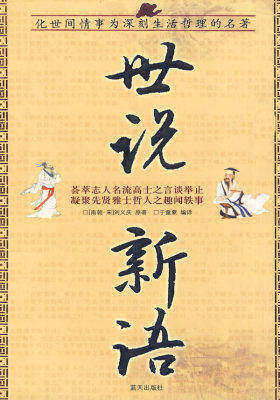 化世间情事为深刻生活哲理的名著
世说新语
荟萃志人名流高士之言谈举止
凝聚先贤雅士哲人之趣闻轶事
□[南朝·宋]刘义庆 原著 □于童蒙 编译
蓝天出版社